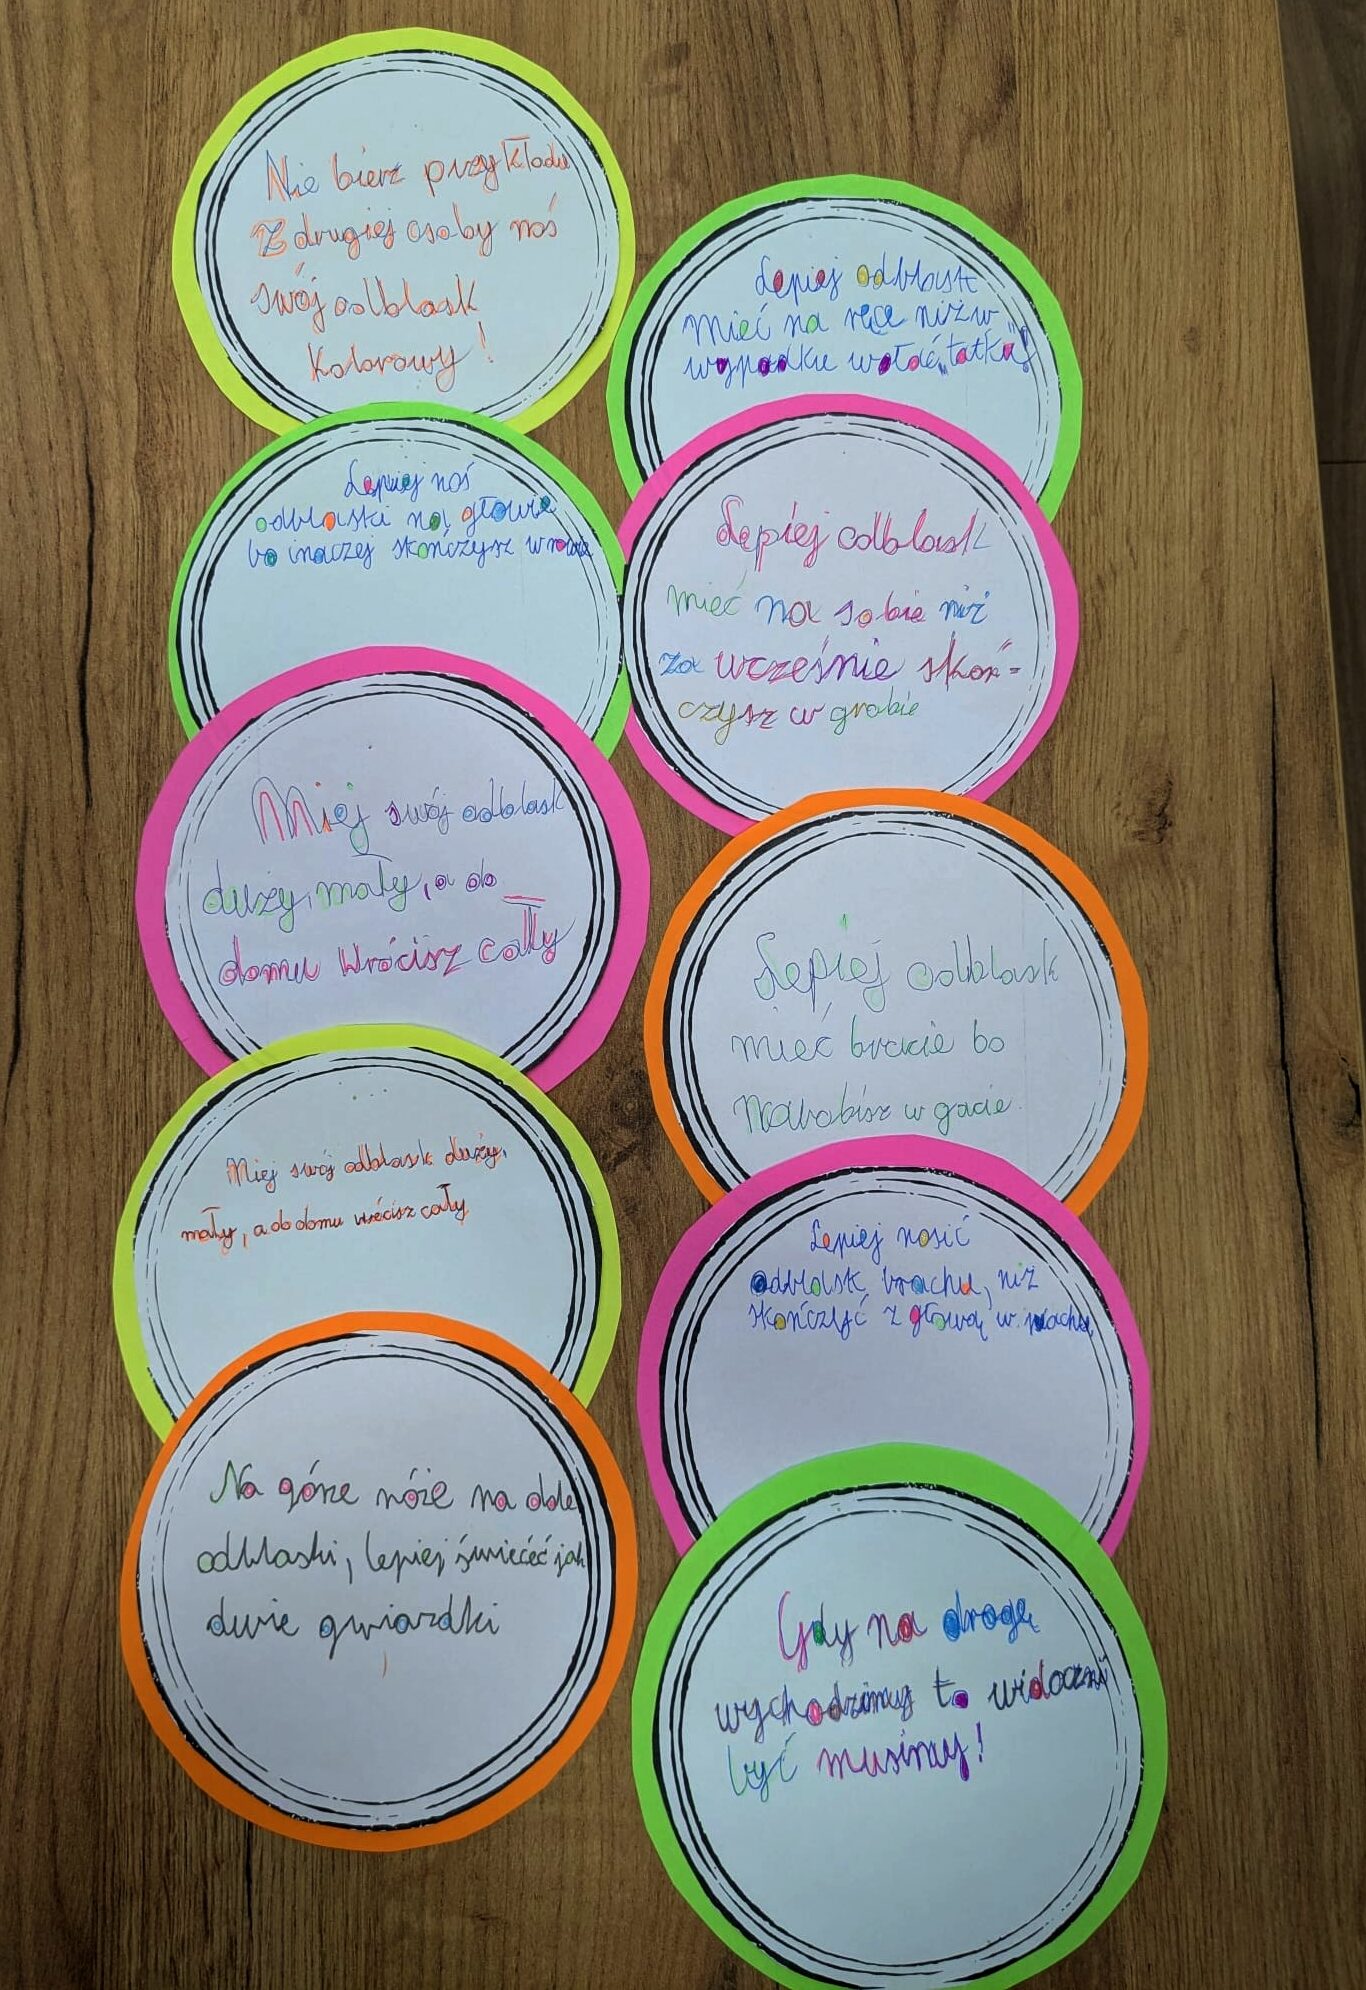 Nie bierz przykładu
z drugiej osoby noś
swój odblask
kolorowy!
Lepiej odblask
mieć na ręce niż w
wypadku wołać „tatku”
Lepiej noś
odblaski na głowie
bo inaczej skończysz w rowie
Lepiej odblask
mieć na sobie niż
za wcześnie skoń-
czysz w grobie
Miej swój odblask
duży, mały, a do
domu wrócisz cały
Lepiej odblask
mieć bracie bo
narobisz w gacie.
Miej swój odblask duży,
mały, a do domu wrócisz cały
Lepiej nosić
odblask brachu, niż
skończyć z głową w piachu
Na górze róże na dole
odblaski, lepiej świecić jak
dwie gwiazdki
Gdy na drogę
wychodzimy to widoczni
być musimy!